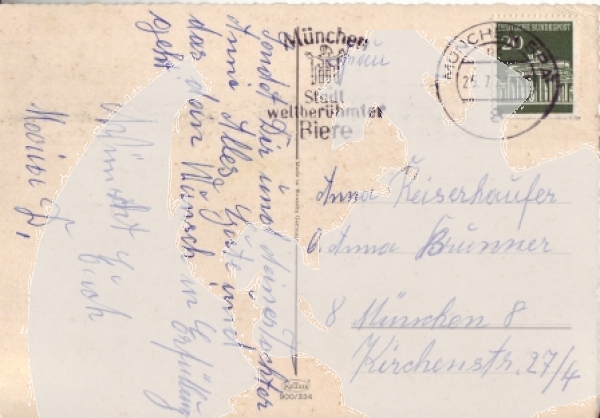 München
Stadt
weltberühmter
Biere
DEUTSCHE BUNDESPOST
20
MÜNCHEN
25.7.
8
Frau
Anna Reiserhaufer
b. Anna Brunner
8 München 8
Kirchenstr. 27/4
sendet Dir und deiner Tochter
Anni Alles Gute und
das dein Wunsch in Erfüllung
geht.
wünscht Euch
900/334